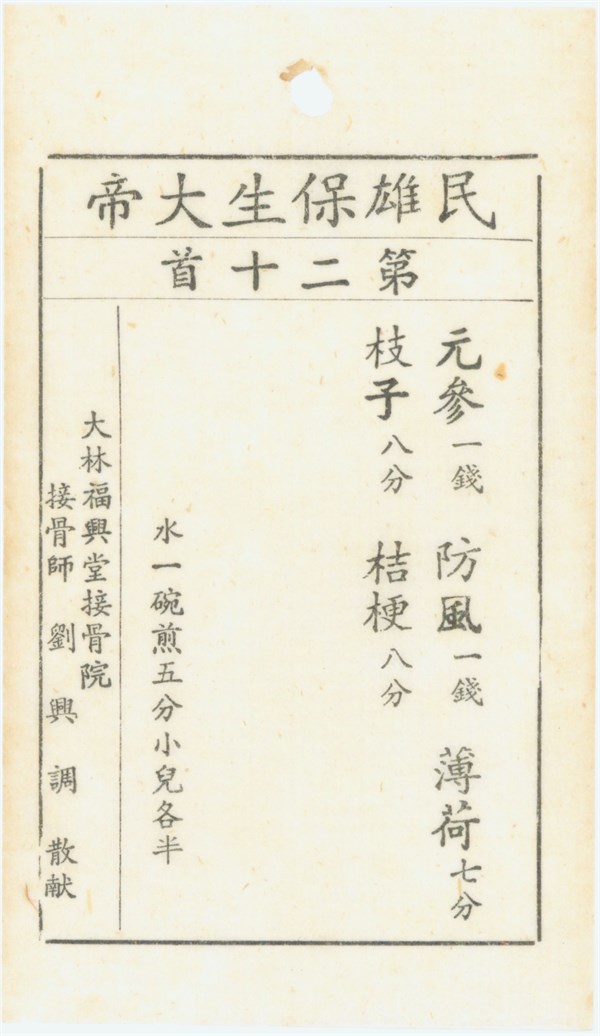 民雄保生大帝
第二十首
元參一錢 防風一錢 薄荷七分
枝子八分 桔梗八分
水一碗煎五分小兒各半
大林福興堂接骨院
接骨師 劉興調 敬献